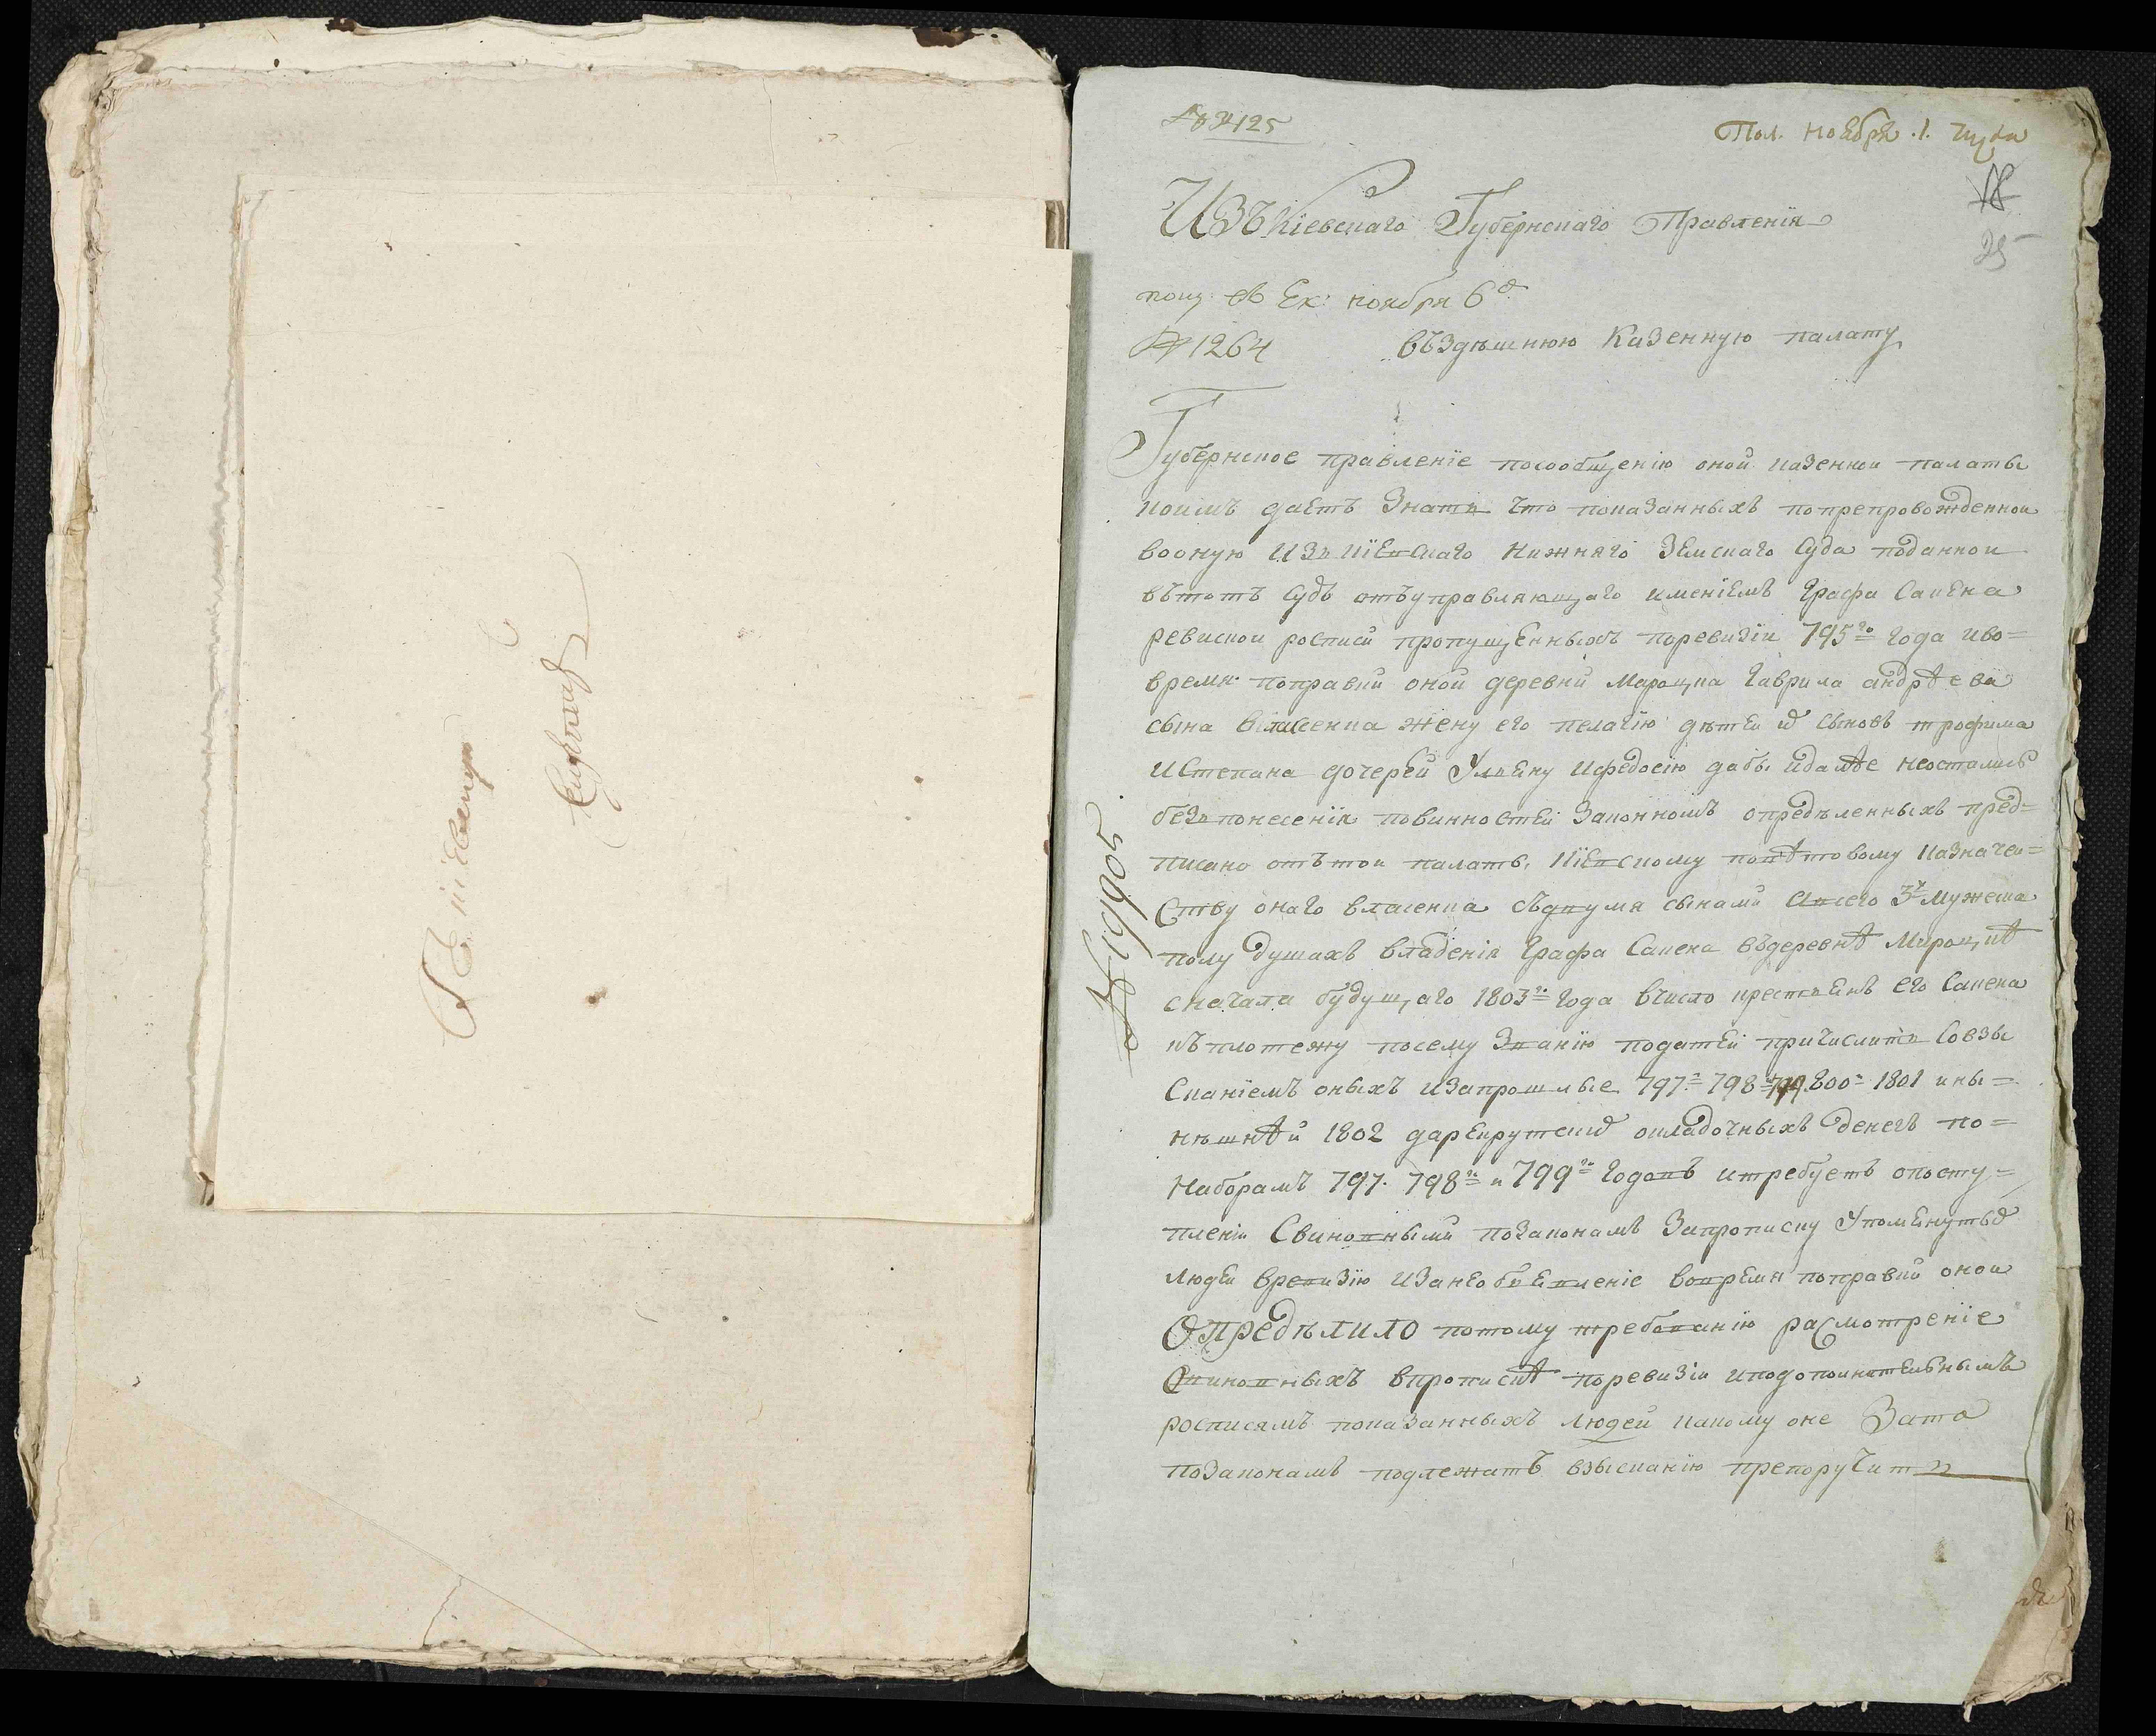 № 125
Пол. Ноября .1. числа
18
25
Изъ Кіевскаго Губернскаго Правленія
пош. въ Ек: ноября 6д
№ 1264
въздѣшнюю Казенную палату
Губернское правленіе посообщенію оной казенной палаты
коимъ даетъ знать что показанныхъ попрепровожденной
вооную изъ Кіевскаго Нижняго Земскаго Суда поданной
вътотъ Судъ отъуправляющаго имениемъ Графа Сапеги
ревиской росписи пропущенныхъ поревизіи 795го года иво=
время поправки оной деревни Мироцка Гаврила андрѣева
сына власенка жену его пелагію дѣтей ихъ сыновъ трофима
иСтепана дочерей Ульяну ифедосію дабы идалѣе неостались
безъпонесенія повинностей Закономъ опредѣленныхъ пред=
писано отътой палаты Кіевскому повѣтовому Казначей=
Ству онаго власенка съдвумя сынами всего 3х мужеска
полу душахъ владенія Графа Сапеги въдеревнѣ Мироцкѣ
сначала будущаго 1803го Года вчисло крестьянъ его Сапеги
къ платежу посему Званію податей причислить Совзы
Сканіемъ оныхъ изапрошлые 797. 798 799 800 1801 ины=
нѣшнѣй 1802 дарекрутскихъ окладочныхъ денегъ по=
Наборамъ 797. 798го и 799го Годовъ итребуетъ опосту=
пленіи Свиновными позаконамъ Запрописку Упомянутыхъ
людей вревизію изанеобъявленіе вовремя поправки оной
Опредѣлило потому требованію расмотреніе
Овиновныхъ впропискѣ поревизіи иподополнительнымъ
росписямъ показанныхъ людей какому оне Зато
позаконамъ подлежатъ взысканію препоручить
№ 19905